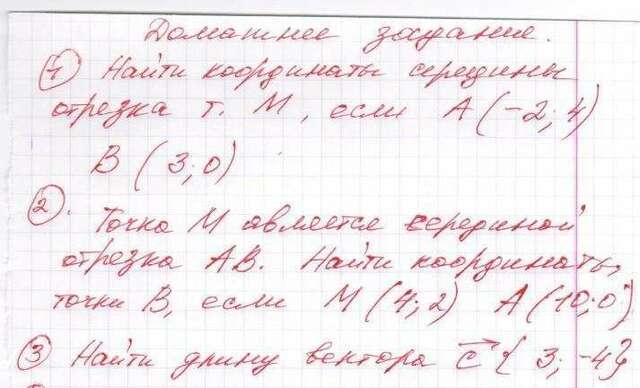 Домашнее задание.
① Найти координаты середины
отрезка т. М, если А (-2; 4)
В (3; 0)
②. Точка М является серединой
отрезка АВ. Найти координаты
точки В, если М (4; 2) А (10; 0)
③ Найти длину вектора c⃗ { 3; -4}